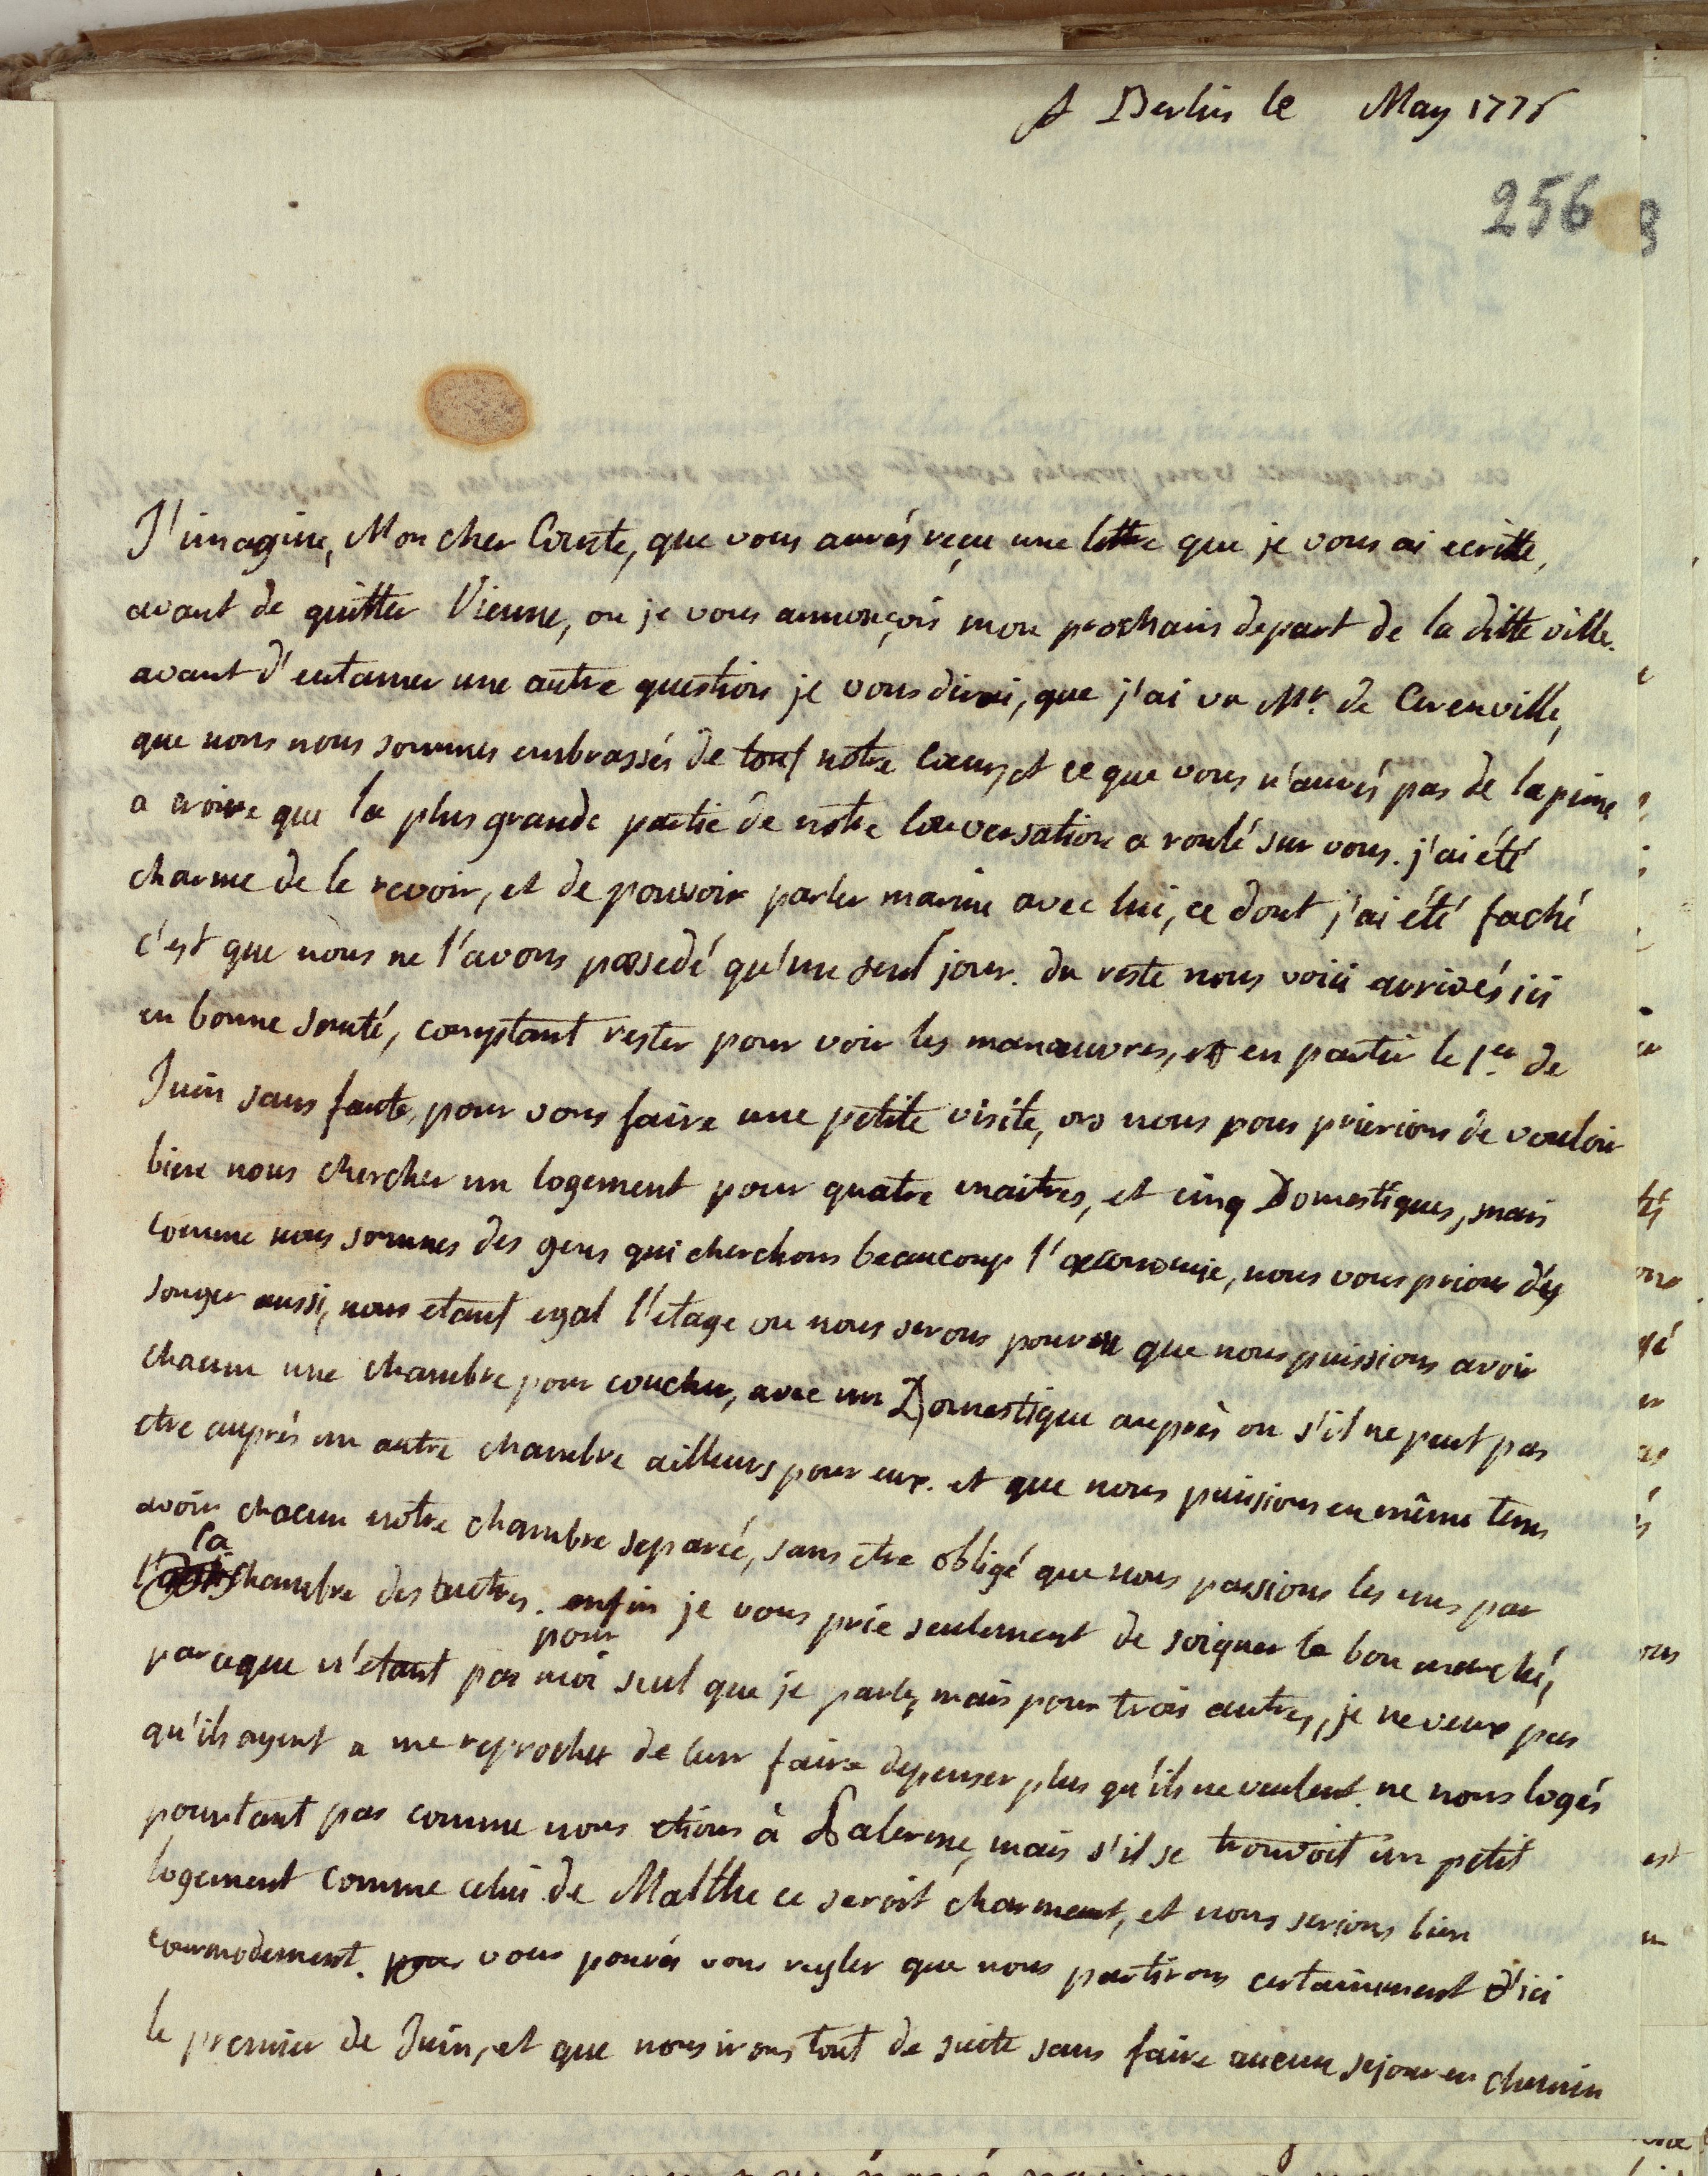 A Berlin le May 1776
256
J'imagine, Mon cher Comte, que vous aurés reçu une lettre que je vous ai ecritte,
avant de quitter Vienne, ou je vous annonçois mon prochain depart de la ditte ville.
avant d'entamer une autre question je vous dirai, que j'ai vu Mr. de Cerenville,
que nous nous sommes embrassés de tout notre Coeur, et ce que vous n'aurés pas de la peine
a croire que la plus grande partie de notre Conversation a roulé sur vous. j'ai été
charme de le revoir, et de pouvoir parler marine avec lui, ce dont j'ai été faché
c'est que nous ne l'avons possedé qu'un seul jour. du reste nous voici arrivés ici
en bonne santé, comptant rester pour voir les manœuvres, et en partir le 1er de
Juin sans faute, pour vous faire une petite visite, nous vous prierions de vouloir
bien nous chercher un logement pour quatre maitres, et cinq Domestiques, mais
comme nous sommes des gens qui cherchons beaucoup l'œconomie, nous vous prions d'y
songer aussi, nous etant egal l'etage ou nous serons pourvu que nous puissions avoir
chacun une chambre pour coucher, avec un Domestique auprès ou s'il ne peut pas
etre auprés un autre chambre ailleurs pour eux. et que nous puissions en même tems
avoir chacun notre chambre separée, sans etre obligé que nous passions les uns par
la
chambre des autres. enfin je vous prie seulement de soigner le bon marché,
pour
parceque n'etant pas moi seul que je parle, mais pour trois autres, je ne veux pas
qu'ils ayent a me reprocher de leur faire depenser plus qu'ils ne veulent. ne nous logés
pourtant pas comme nous etions à Palerme, mais s'il se trouvoit un petit
logement comme celui de Malthe ce seroit charmant, et nous serions bien
commodement. vous pouvés vous regler que nous partirons certainement d'ici
le premier de Juin, et que nous irons tout de suite sans faire aucun sejour en chemin